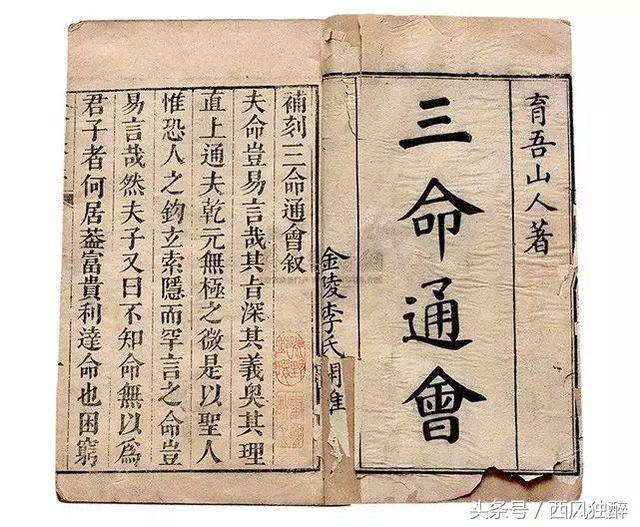 育吾山人著
三命通會
金陵李氏
補刻三命通會叙
夫命豈易言哉其旨深其義奧其理
直上通夫乾元無極之微是以聖人
惟恐人之鈎玄索隱而罕言之命豈
易言哉然夫子又曰不知命無以爲
君子者何居葢富貴利達命也困窮
头条号/西风独醉